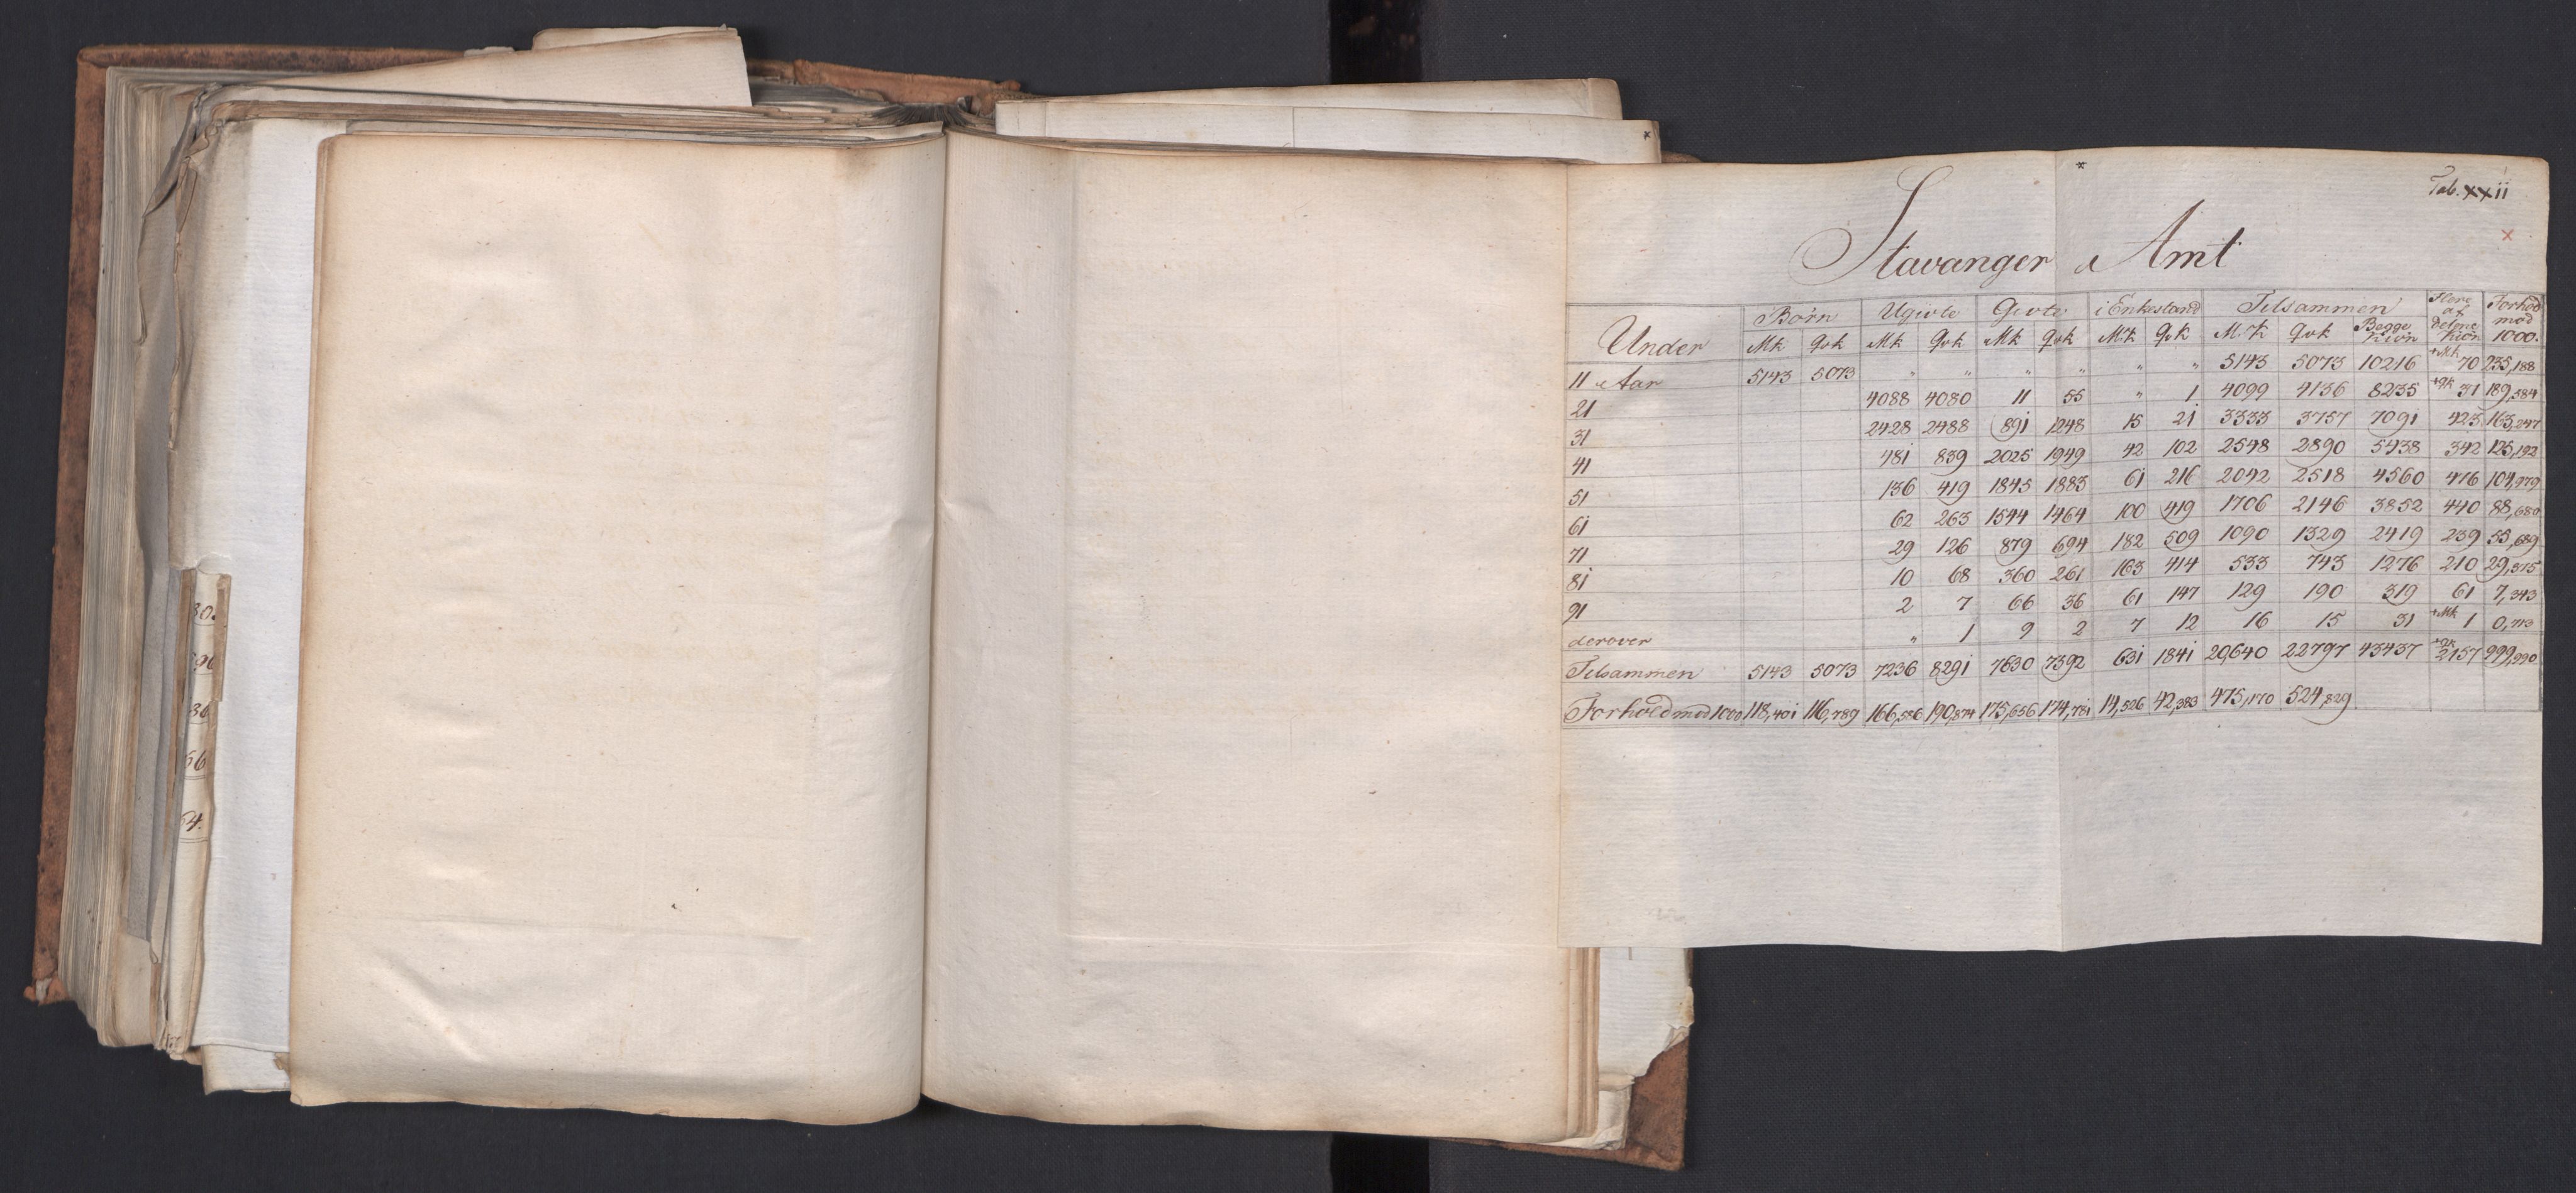 *
*
Tab. xxii
x
Stavanger Amt
Under | Børn | Ugivte | Givte | i Enkestand | Tilsammen | Flere af delmt Kiön | Forhold mod 1000.
Mk | Qvk | Mk | Qvk | Mk | Qvk | Mk | Qvk | M.K | Qvk | Begge Kiön
11 Aar | 5143 | 5073 | " | " | " | " | " | " | 5143 | 5073 | 10216 | +Mk 70 | 235,188
21 | 4088 | 4080 | 11 | 55 | " | 1 | 4099 | 4136 | 8235 | +Qk 31 | 189,584
31 | 2428 | 2488 | 891 | 1248 | 15 | 21 | 3333 | 3757 | 7091 | 423 | 163,247
41 | 481 | 839 | 2025 | 1949 | 42 | 102 | 2548 | 2890 | 5438 | 342 | 125,192
51 | 136 | 419 | 1845 | 1883 | 61 | 216 | 2042 | 2518 | 4560 | 476 | 104,979
61 | 62 | 263 | 1544 | 1464 | 100 | 419 | 1706 | 2146 | 3852 | 440 | 88,680
71 | 29 | 126 | 879 | 694 | 182 | 509 | 1090 | 1329 | 2419 | 239 | 55,689
81 | 10 | 68 | 360 | 261 | 163 | 414 | 533 | 743 | 1276 | 210 | 29,375
91 | 2 | 7 | 66 | 36 | 61 | 147 | 129 | 190 | 319 | 61 | 7,343
derover | " | 1 | 9 | 2 | 7 | 12 | 16 | 15 | 31 | +Mk 1 | 0,713
Tilsammen | 5143 | 5073 | 7236 | 8291 | 7630 | 7592 | 631 | 1841 | 20,640 | 22797 | 43437 | +Qk 2157 | 999,990
Forhold mod 1000 | 118,401 | 116,789 | 166,586 | 190,874 | 175,656 | 174,781 | 14,526 | 42,383 | 475,170 | 524,829
30.
96
36
56
64.